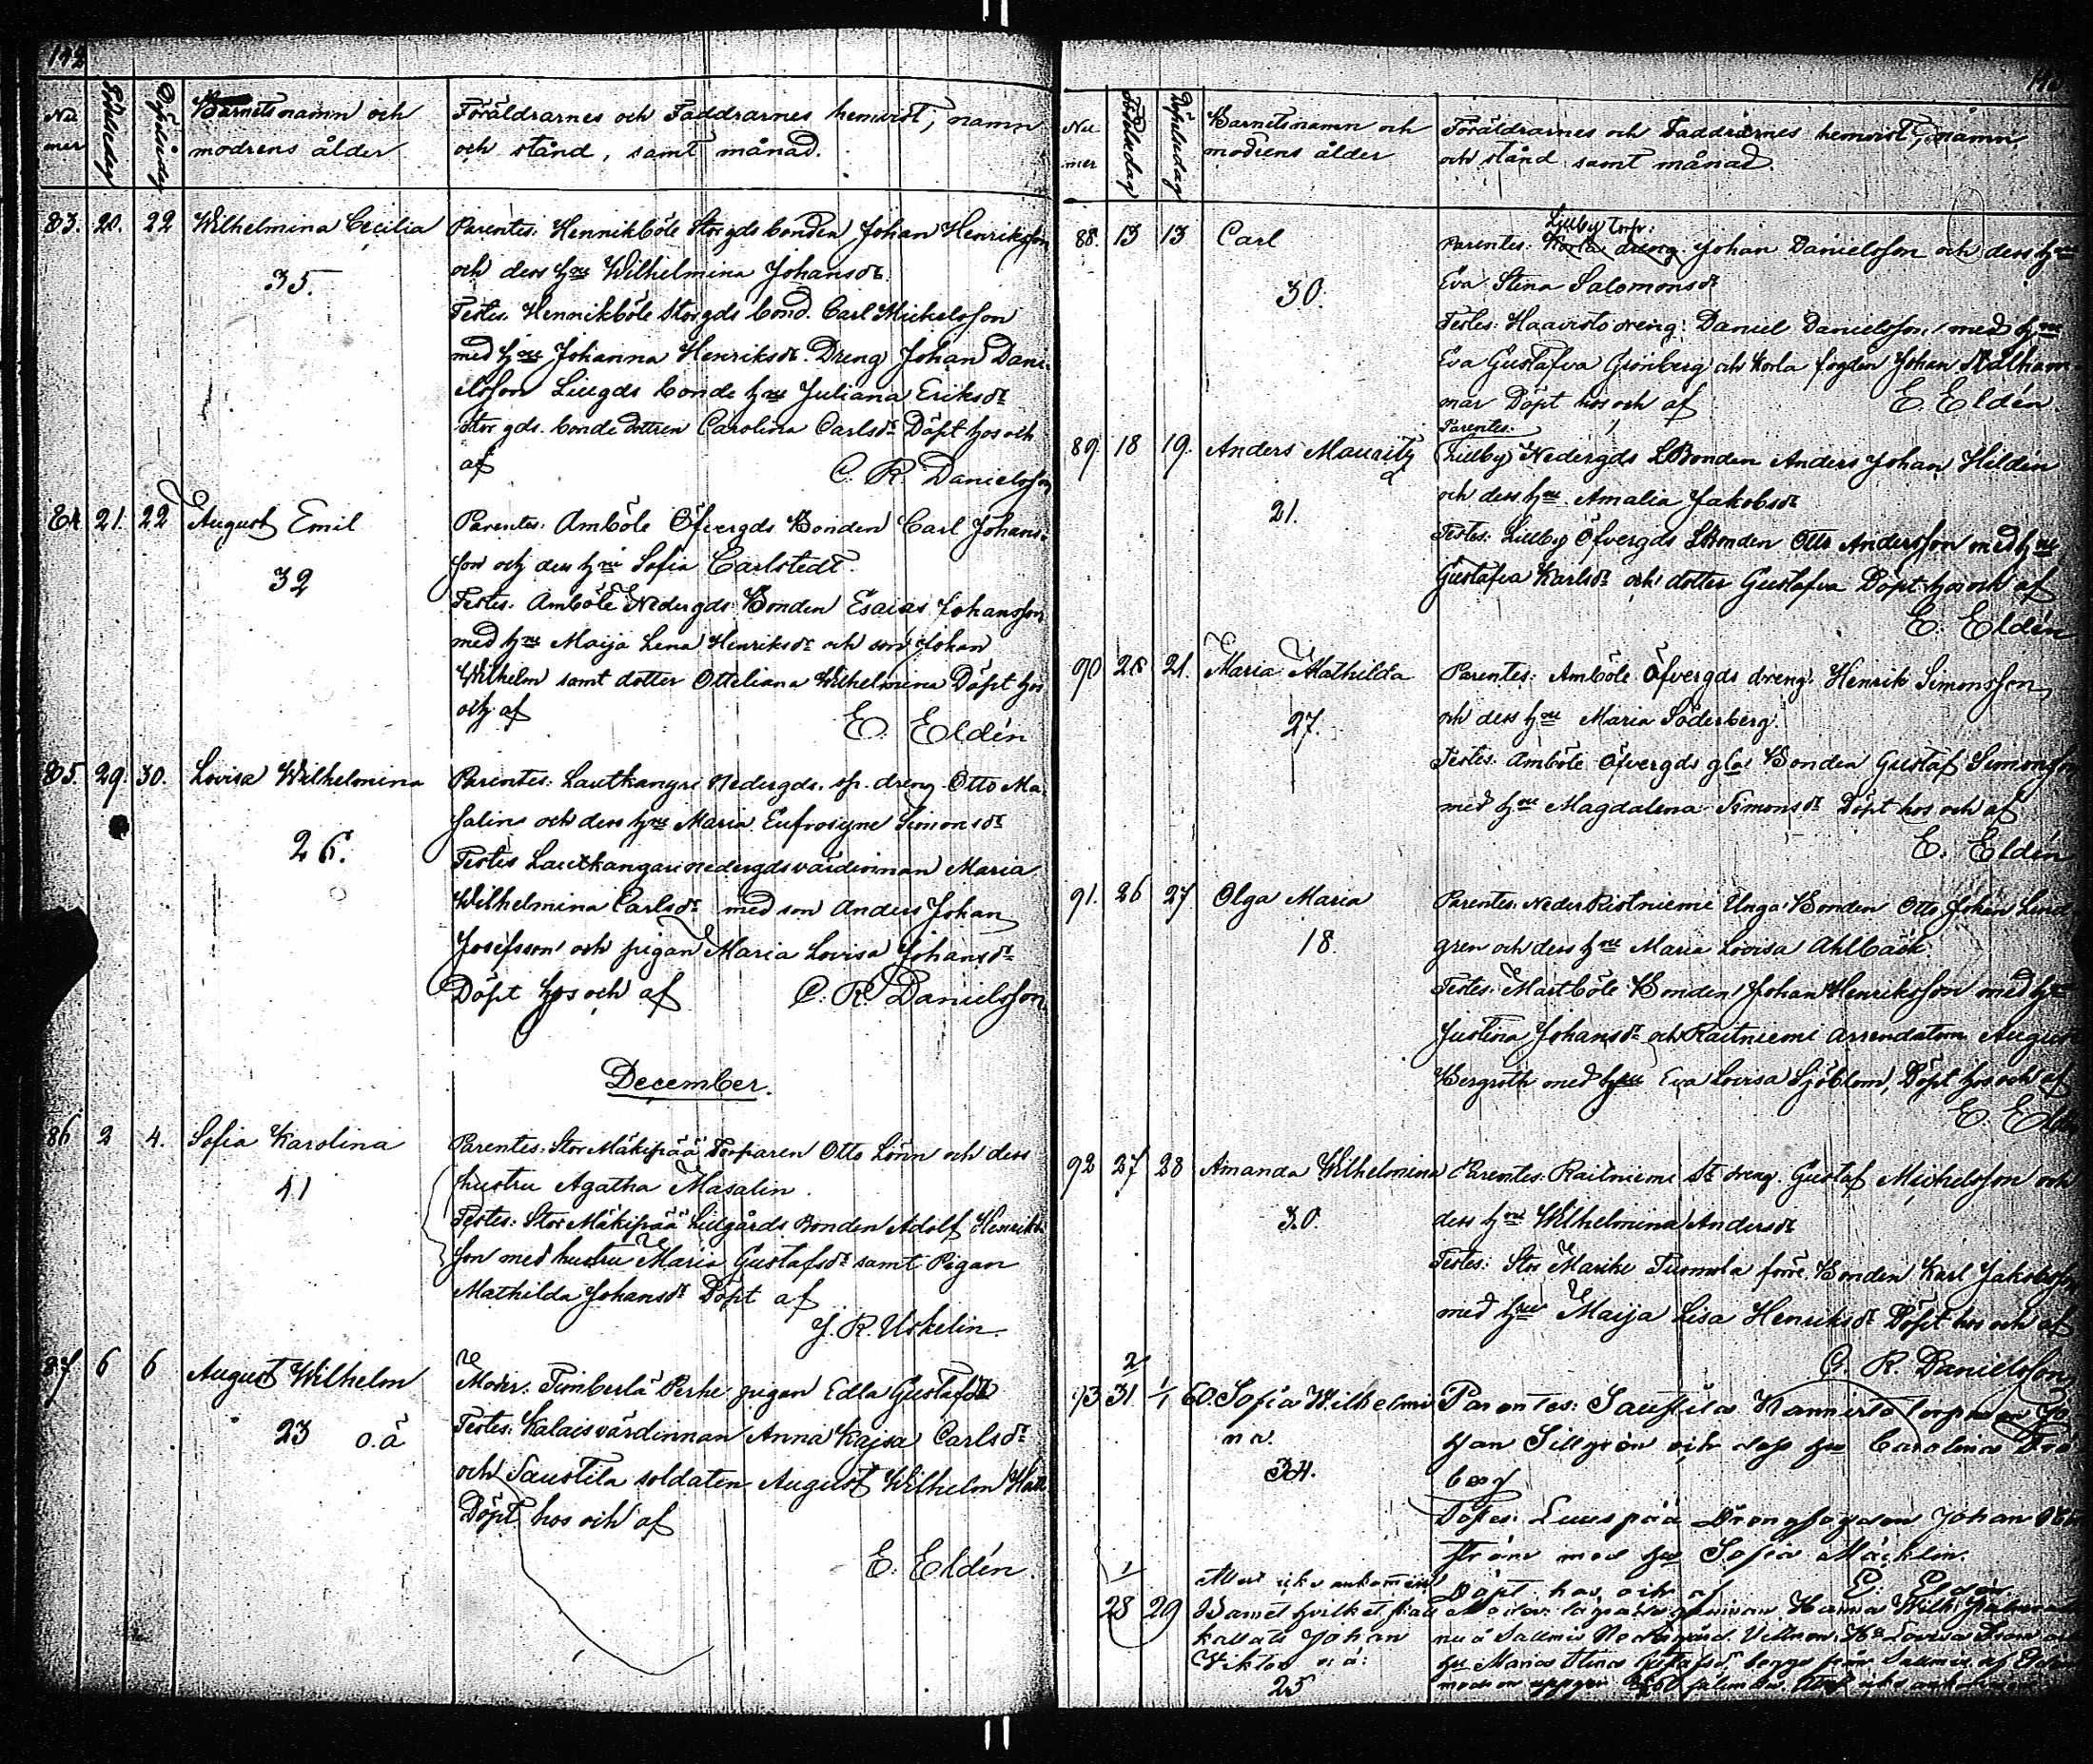 Nu mer
Födelsedag
Döpelsedag
Barnets namn och
modrens ålder
Föräldrarnes och Faddrarnes hemvist, namn
och stånd, samt månad.
83. 20. 22 Wilhelmina Cecilia
35.
Parentes: Hennikböle Storgds bonden Johan Henriksson
och dess hru Wilhelmina Johansdr.
Testes: Hennikböle Storgds bond. Carl Michelsson
med hru Johanna Henriksdr. Dreng Johan Dani-
elsson Lillgds bonde hru Juliana Eriksdr
Stor gds. bonde dottren Carolina Carlsdr Döpt hos och
af C. R. Danielsson
84 21. 22 August Emil
32
Parentes: Amböle Öfvergds Bonden Carl Johans-
son och dess hru Sofia Carlstedt.
Testes: Amböle Nedergds Bonden Esaias Johansson
med hru Maija Lena Henriksdr och son Johan
Wilhelm samt dotter Otteliana Wilhelmina Döpt hos
och af E. Eldén
85. 29. 30. Lovisa Wilhelmina
26.
Parentes: Lautkangare Nedergds. sp. dreng Otto Ma-
salin och dess hru Maria Eufrosyne Simonsdr
Testes Lautkangare nedergdsvärdinnan Maria
Wilhelmina Carlsdr med son Anders Johan
Josefsson och pigan Maria Lovisa Johansdr
Döpt hos och af C. R. Danielsson
December.
86 2 4. Sofia Karolina
41
Parentes: Stor Mäkipää Torparen Otto Lönn och dess
hustru Agatha Masalin.
Testes: Stor Mäkipää Lillgårds Bonden Adolf Henriks-
son med hustru Maria Gustafsdr samt Pigan
Mathilda Johansdr Döpt af
J. R. Uskelin.
87 6 6 August Wilhelm
23 o.ä
Moder: Timberlä Perhe pigan Edla Gustafsdr
Testes: Kalais värdinnan Anna Kajsa Carlsdr
och Saustila soldaten August Wilhelm
Döpt hos och af
E. Eldén.
Nu mer
Födelsedag
Döpelsedag
Barnets namn och
modrens ålder
Föräldrarnes och Faddrarnes hemvist, namn
och stånd samt månad.
88. 13 13 Carl
30.
Lillby torp:
Parentes: Korla dreng. Johan Danielsson och dess hru
Eva Stina Salomonsdr
Testes: Haavisto dreng: Daniel Danielsson med hru
Eva Gustafva Grönberg och Korla fogden Johan
mar Döpt hos och af E. Eldén.
Parentes:
89. 18 19. Anders Mauritz
21.
Lillby Nedergds LBonden Anders Johan Hildén
och dess hru Amalia Jakobsdr
Testes: Lillby Öfvergds LBonden Otto Andersson med hru
Gustafva Karlsdr och dotter Gustafva Döpt hos och af
E. Eldén
90 21. Maria Mathilda
27.
Parentes: Amböle Öfvergds dreng: Henrik Simonsson
och dess hru Maria Söderberg.
Testes: Amböle Öfvergds gla Bonden Gustaf Simonsson
med hru Magdalena Simonsdr Döpt hos och af
E. Eldén
91. 26 27 Olga Maria
18.
Parentes: Neder Riotniemi Unga Bonden Otto Johan Lind-
gren och dess hru Maria Lovisa Ahlbäck.
Testes: Martböle Bonden Johan Henriksson med hru
Justina Johansdr och Raitniemi arrendatorn August
Bergroth med hru Eva Lovisa Sjöblom, Döpt hos och af
E. Eldén
92 27 28 Amanda Wilhelmina
30.
Parentes: Raitniemi St dreng. Gustaf Michelsson och
dess hru Wilhelmina Andersdr
Testes: Stor Marike Tuomola förre Bonden Karl Jakobsson
med hru Maija Lisa Henriksdr Döpt hos och af
C. R. Danielsson
93 31. 1/1 Sofia Wilhelmi
na.
34.
Parentes: Saustila torparen Jo-
han Sillgrén och dess hru Carolina
berg
Testes: Luuspää Drengfogden Johan
ström med hru Sofia Mäcklin.
Döpt hos och af E. Eldén
1/
28 29 Barnet hvilket skall
kallats Johan
Viktor o: ä:
25